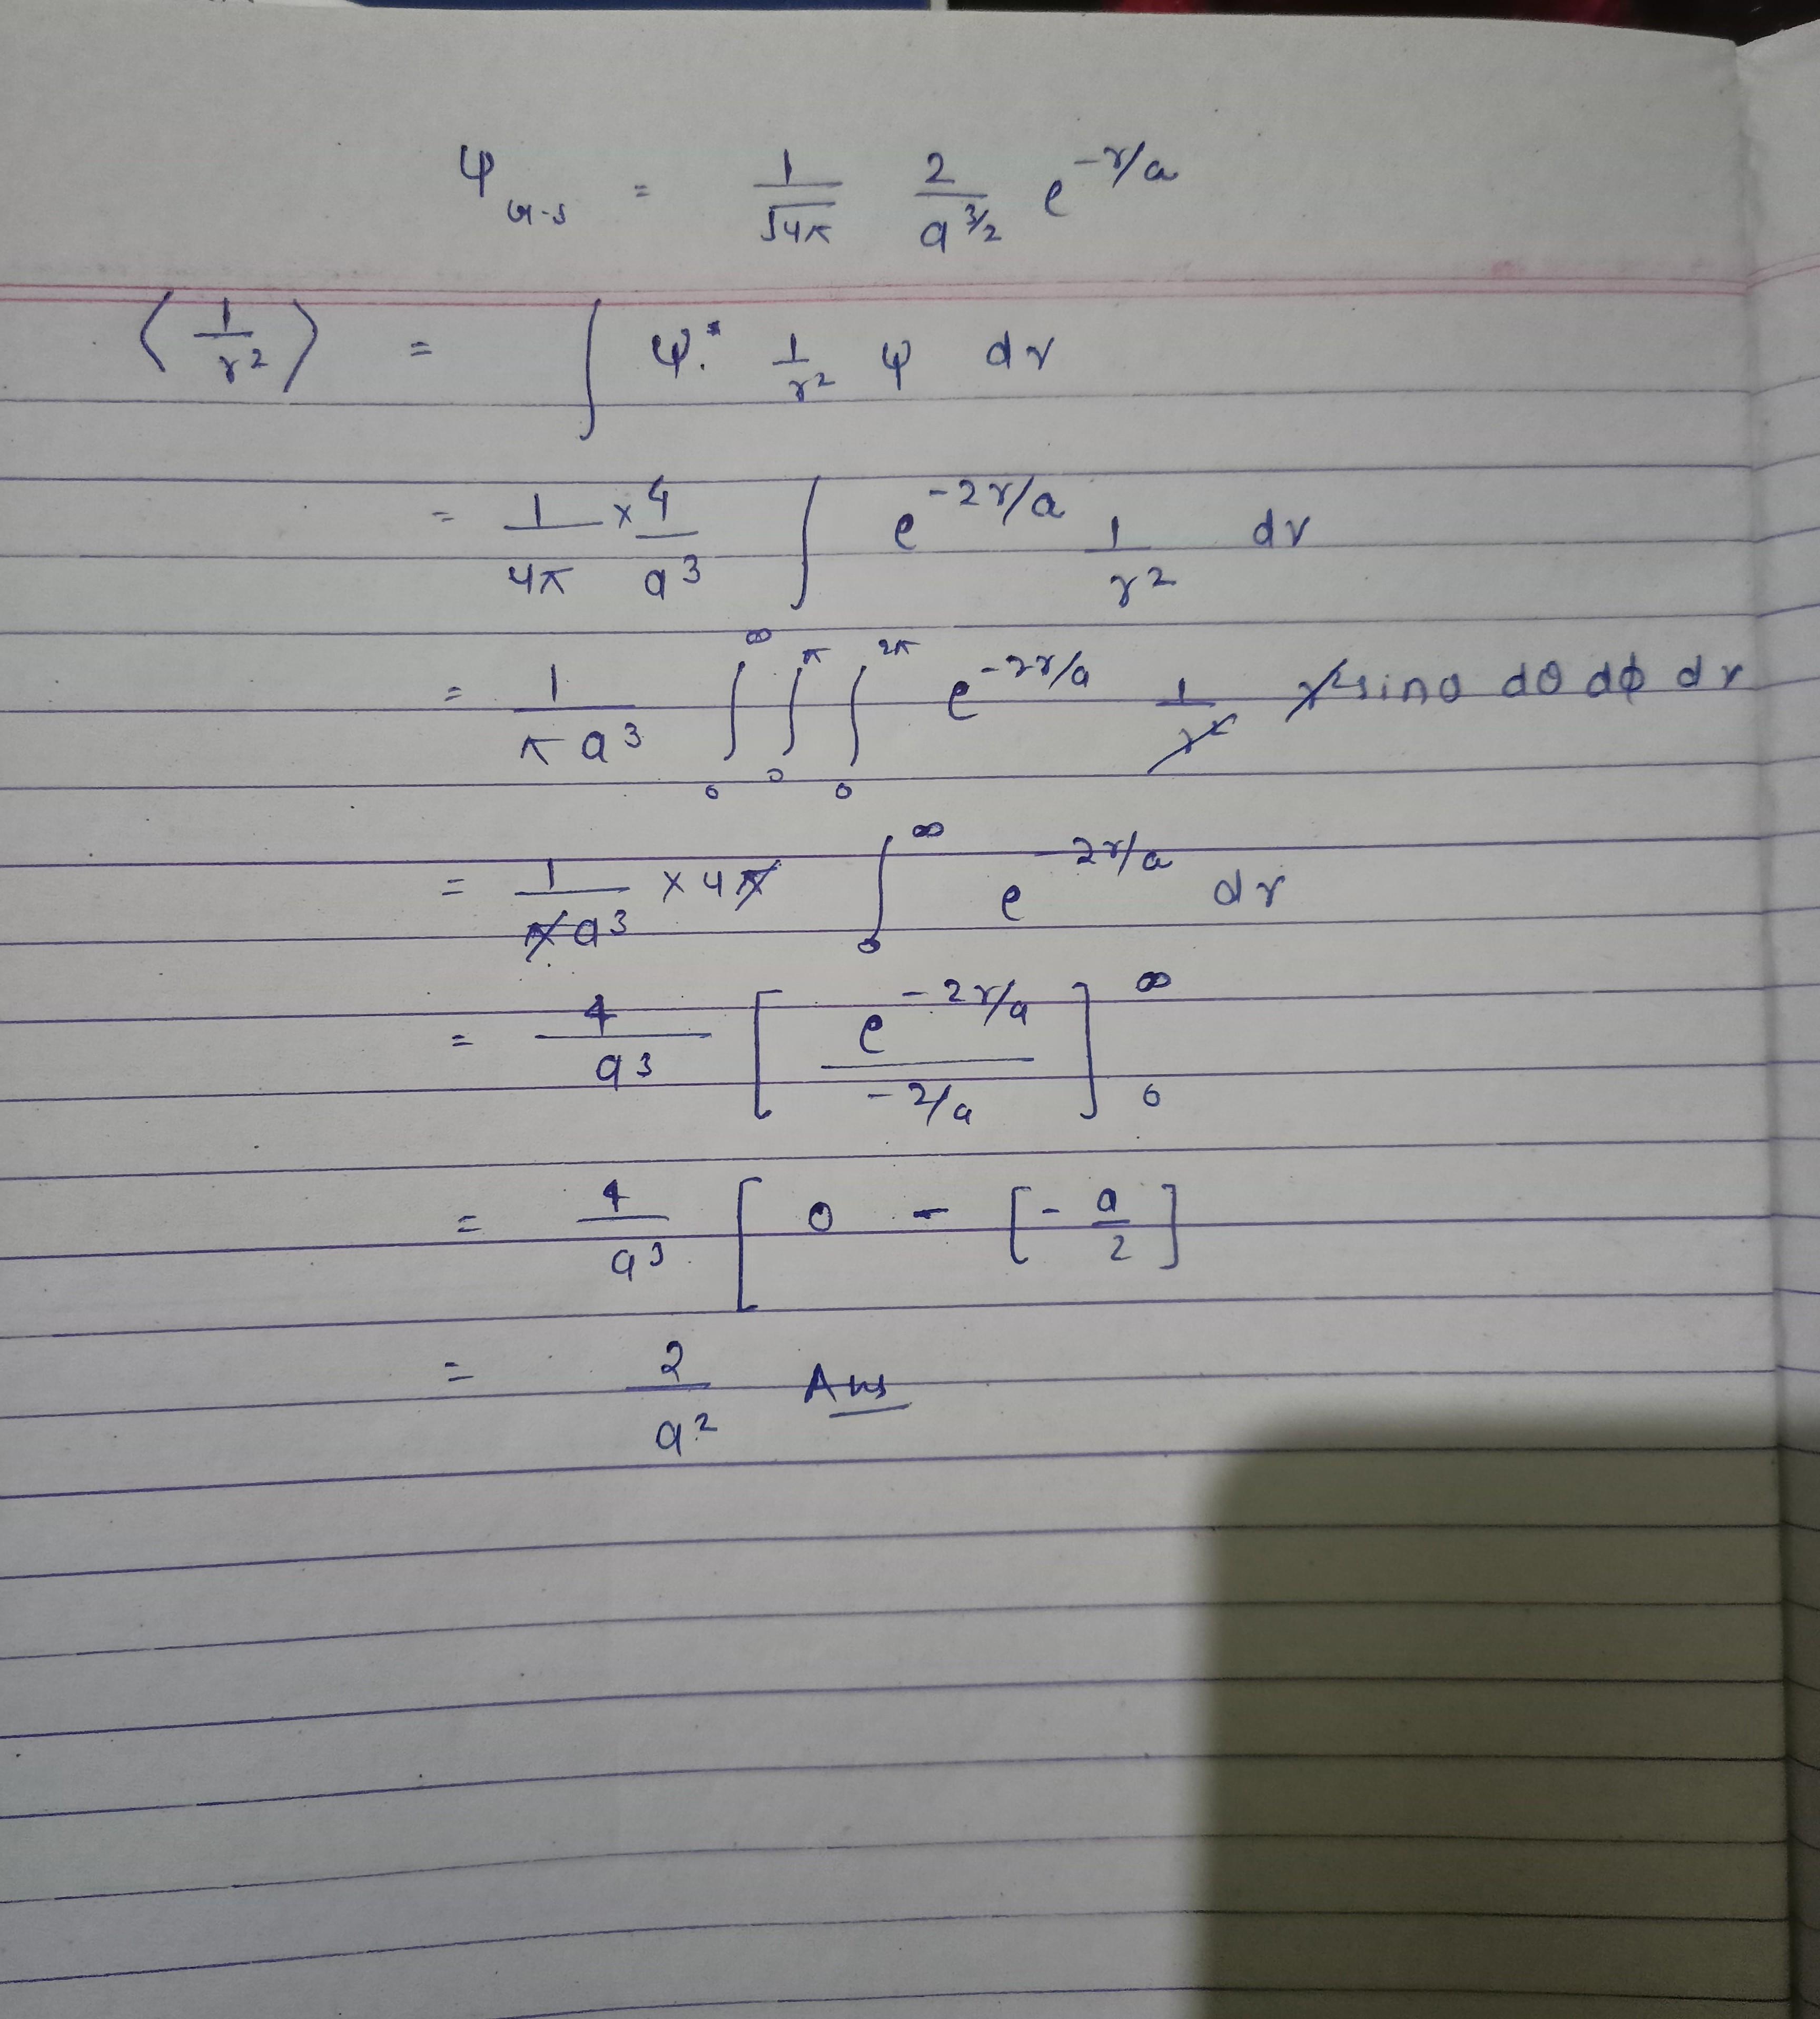 ψ_{G-S} = 1/√4π 2/a^{3/2} e^{-r/a}
⟨1/r²⟩ = ∫ ψ* 1/r² ψ dv
= 1/4π × 4/a³ ∫ e^{-2r/a} 1/r² dv
= 1/πa³ ∫₀^∞ ∫₀^π ∫₀^{2π} e^{-2r/a} 1/r² r² sinθ dθ dϕ dr
= 1/πa³ × 4π ∫₀^∞ e^{-2r/a} dr
= 4/a³ [ e^{-2r/a} / -2/a ]₀^∞
= 4/a³ [ 0 - [- a/2 ]
= 2/a² Ans